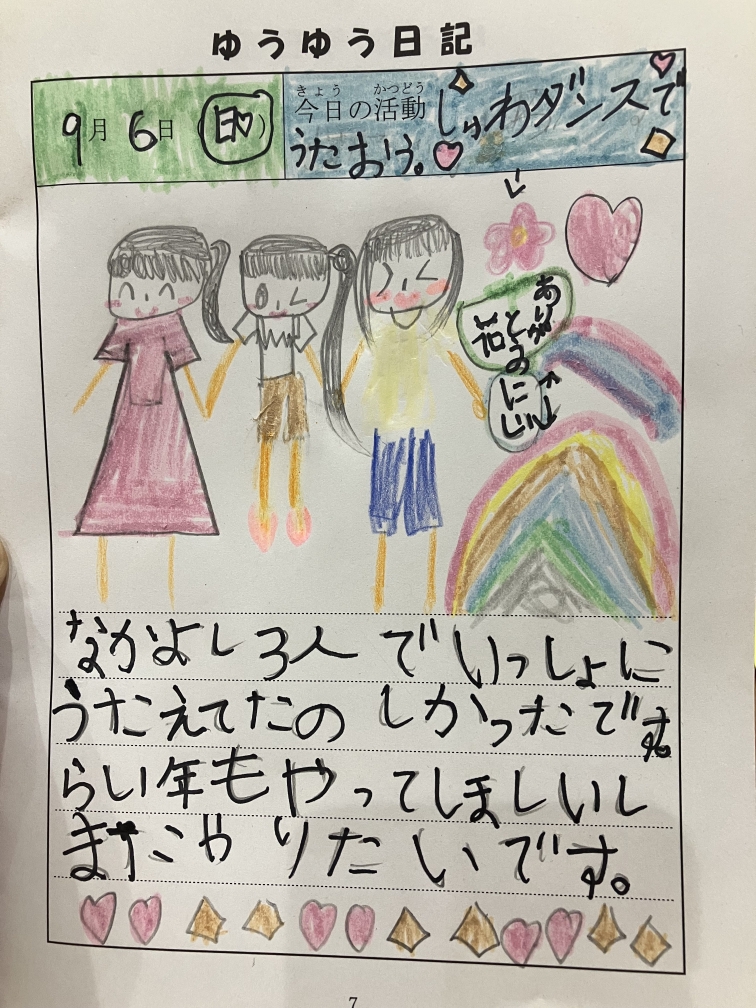 ゆうゆう日記
9月6日(日)
きょう かつどう
今日の活動 しゅわダンスで
うたおう。
ありが
とうの
花
にじ
なかよし3人でいっしょに
うたえてたのしかったです。
らい年もやってほしいし
またやりたいです。
7